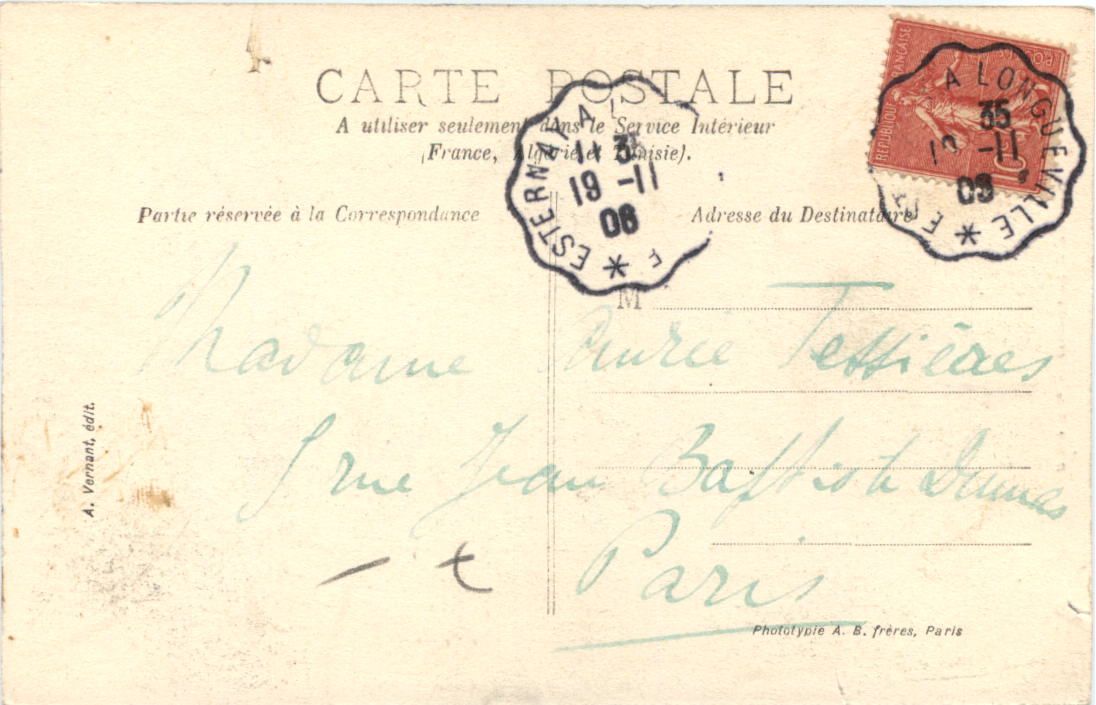 CARTE POSTALE
A utiliser seulement dans le Service Intérieur
(France, Algérie et Tunisie).
Partie réservée à la Correspondance
Adresse du Destinataire
ESTERNAY A L
1 3
19 -11
08
F
RÉPUBLIQUE FRANÇAISE
A LONGUEVILLE
35
19 -11
08
M
Madame Tessières
rue Jean Baptiste Dumas
Paris
A. Vernant, édit.
Phototypie A. B. frères, Paris